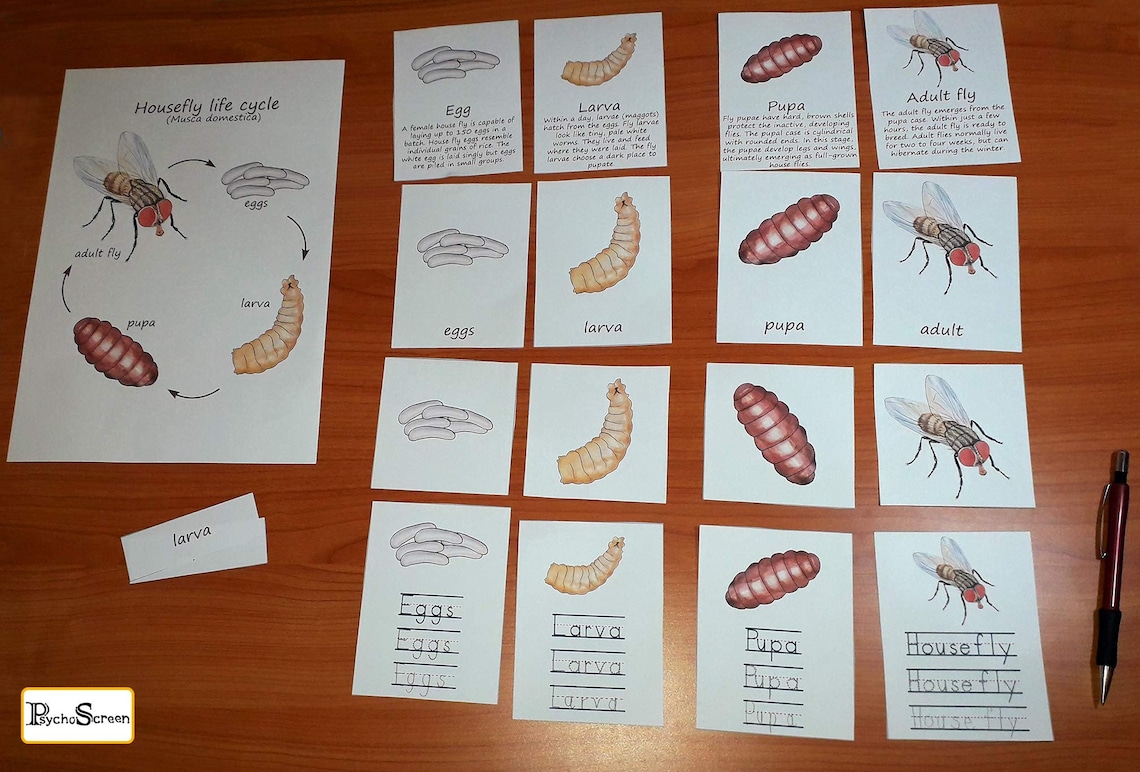 Housefly life cycle
(Musca domestica)
eggs
adult fly
larva
pupa
Egg
A female house fly is capable of
laying up to 150 eggs in a
batch. House fly eggs resemble
individual grains of rice. The
white egg is laid singly but eggs
are piled in small groups.
Larva
Within a day, larvae (maggots)
hatch from the eggs. Fly larvae
look like tiny, pale white
worms. They live and feed
where they were laid. The fly
larvae choose a dark place to
pupate.
Pupa
Fly pupae have hard, brown shells
protect the inactive, developing
flies. The pupal case is cylindrical
with rounded ends. In this stage,
the pupae develop legs and wings,
ultimately emerging as full-grown
house flies.
Adult fly
The adult fly emerges from the
pupa case. Within just a few
hours, the adult fly is ready to
breed. Adult flies normally live
for two to four weeks, but can
hibernate during the winter.
eggs
larva
pupa
adult
larva
Eggs
Eggs
Eggs
Larva
Larva
Larva
Pupa
Pupa
Pupa
Housefly
Housefly
Housefly
PsychoScreen